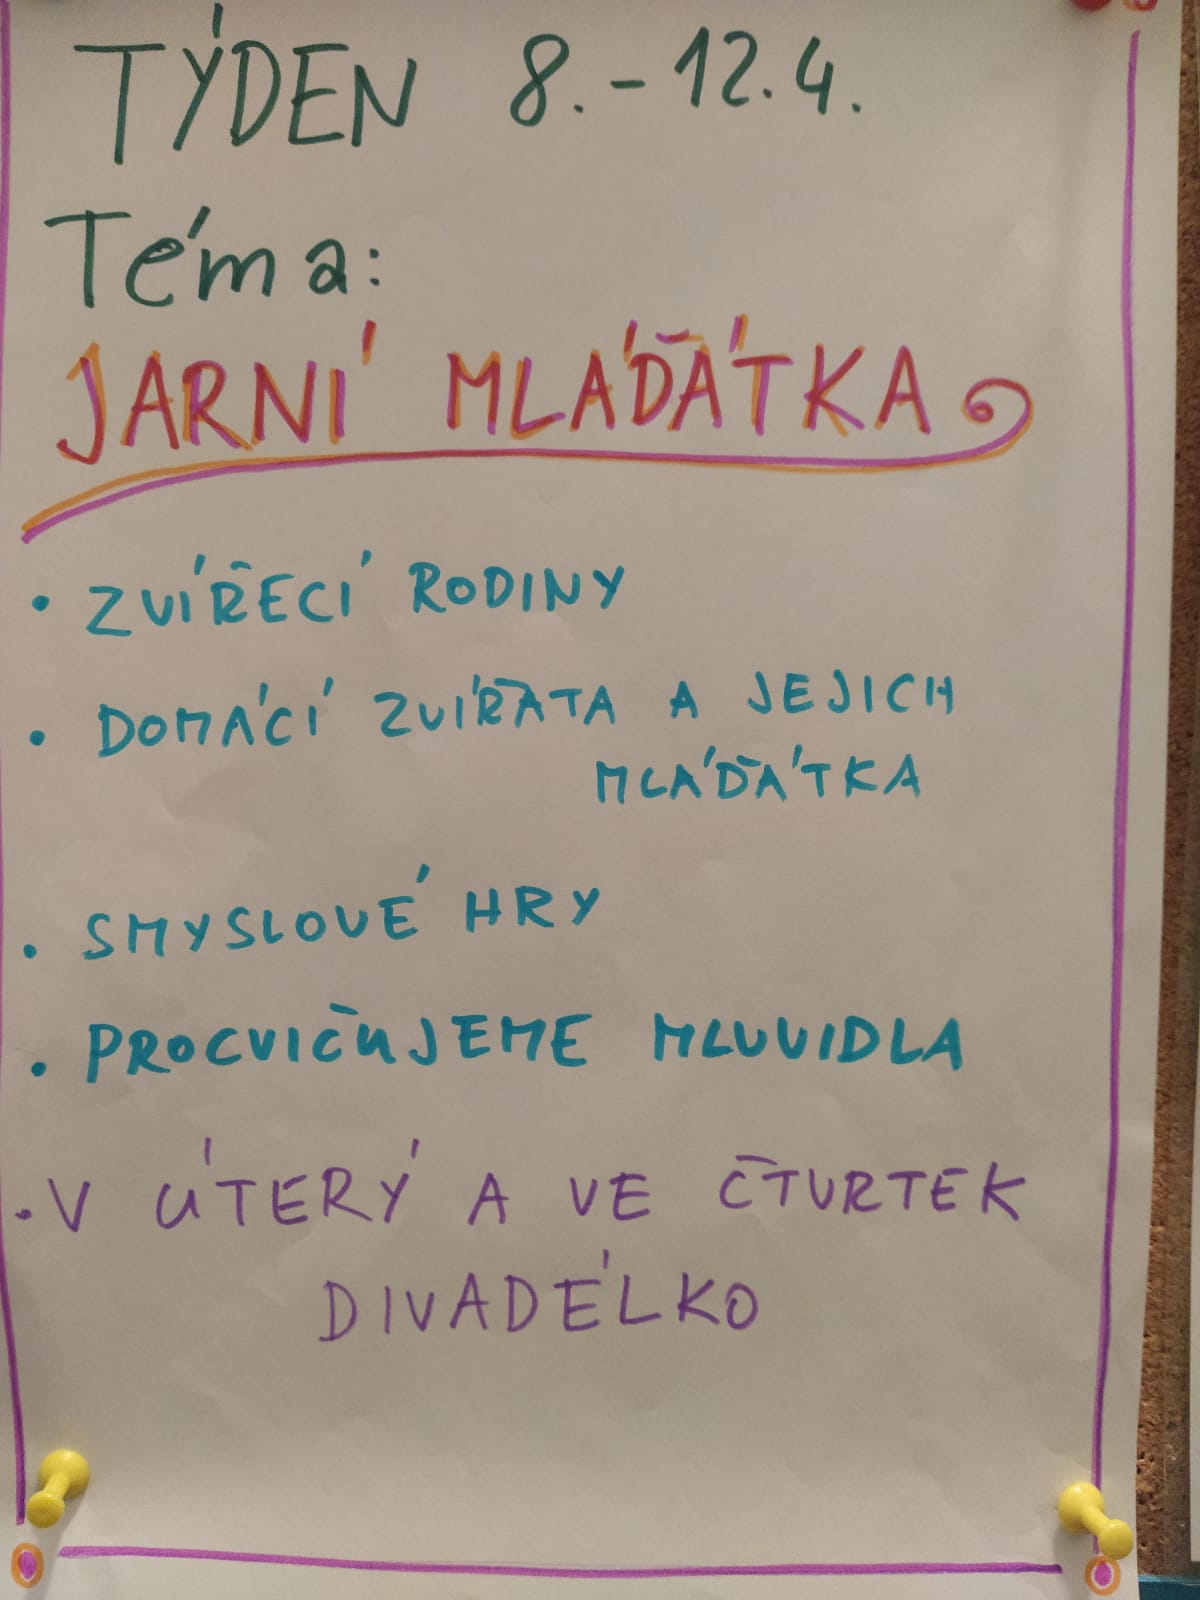 TÝDEN 8. - 12.4.
Téma:
JARNÍ MLÁĎÁTKA
• ZVÍŘECÍ RODINY
• DOMÁCÍ ZVÍŘATA A JEJICH
MLÁĎÁTKA
• SMYSLOVÉ HRY
• PROCVIČUJEME MLUVIDLA
• V ÚTERÝ A VE ČTVRTEK
DIVADÉLKO